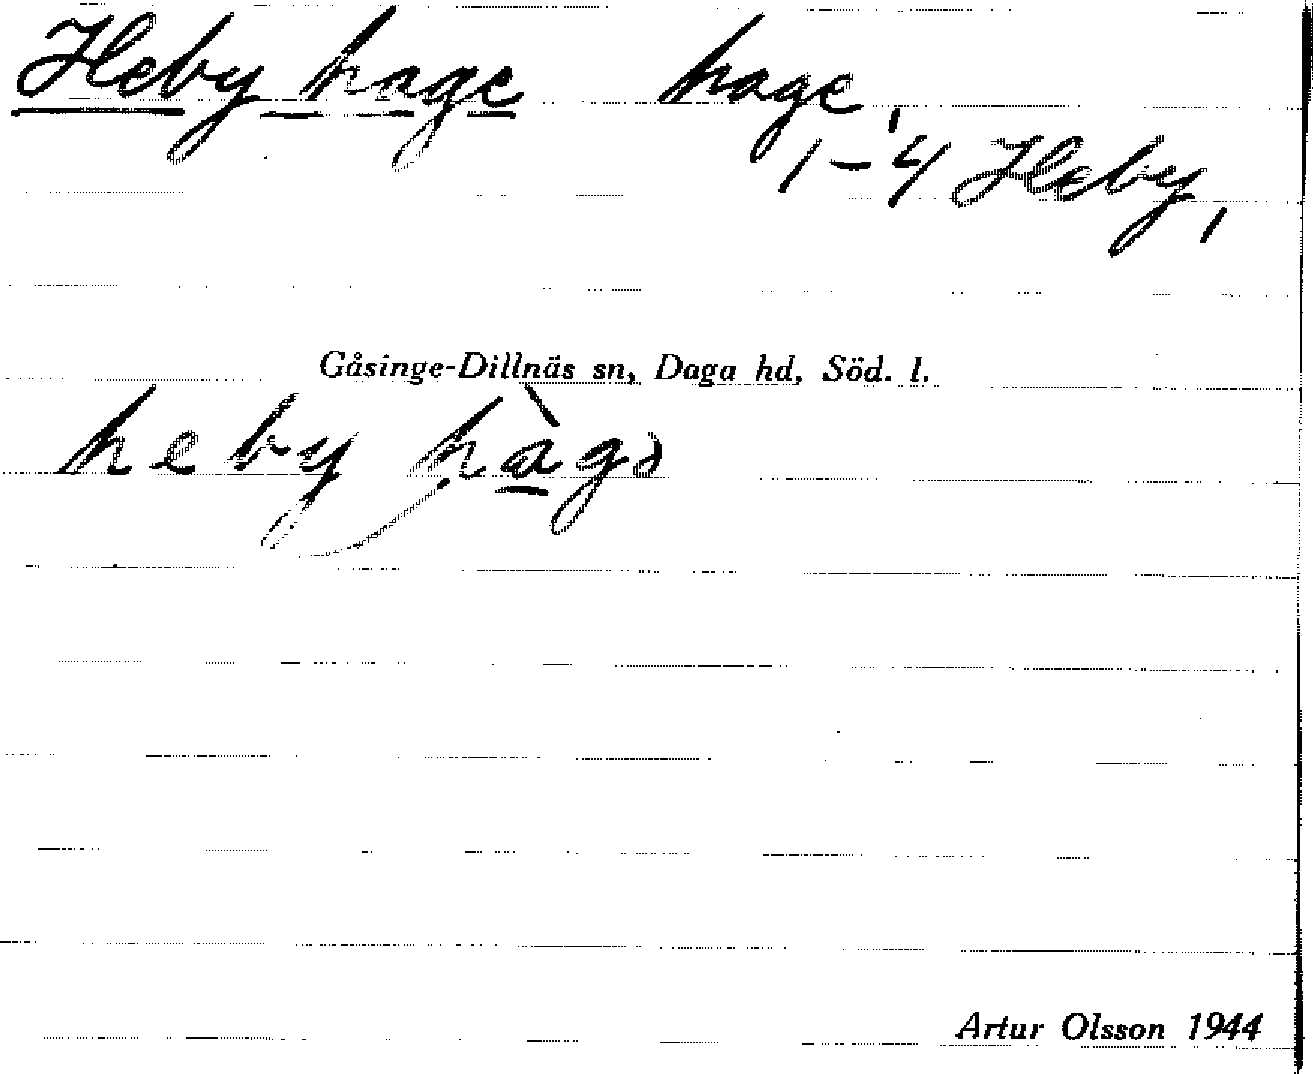 Heby hage hage,
1-4 Heby,
Gåsinge-Dillnäs sn, Daga hd, Söd. l.
heby hàgə
Artur Olsson 1944